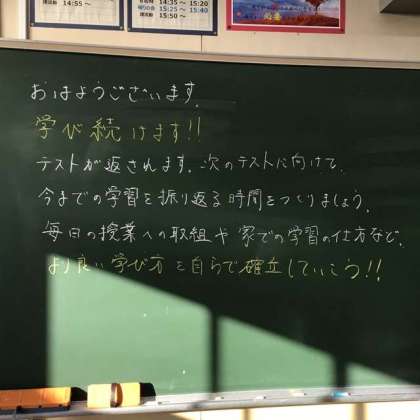 14:35 ～ 14:55
15:50～
14:35 ～ 15:20
15:25 ～ 15:40
15:50～
おはようございます。
学び続けます!!
テストが返されます。次のテストに向けて、
今までの学習を振り返る時間をつくりましょう。
毎日の授業への取組や家での学習の仕方など、
より良い学び方を自らで確立していこう!!